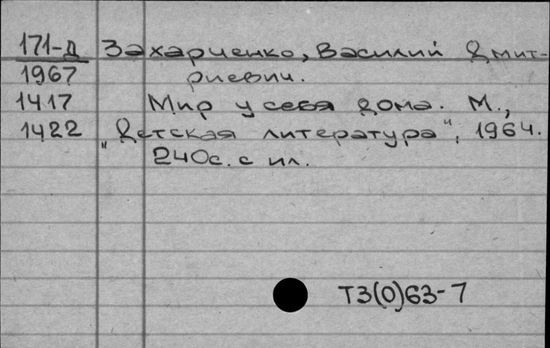 171-Д Захарченко, Василий Дмит-
1967 риевич.
1417 Мир у себя дома. М.,
1422 "Детская литература", 1964.
240с. с ил.
Т3(0)63-7